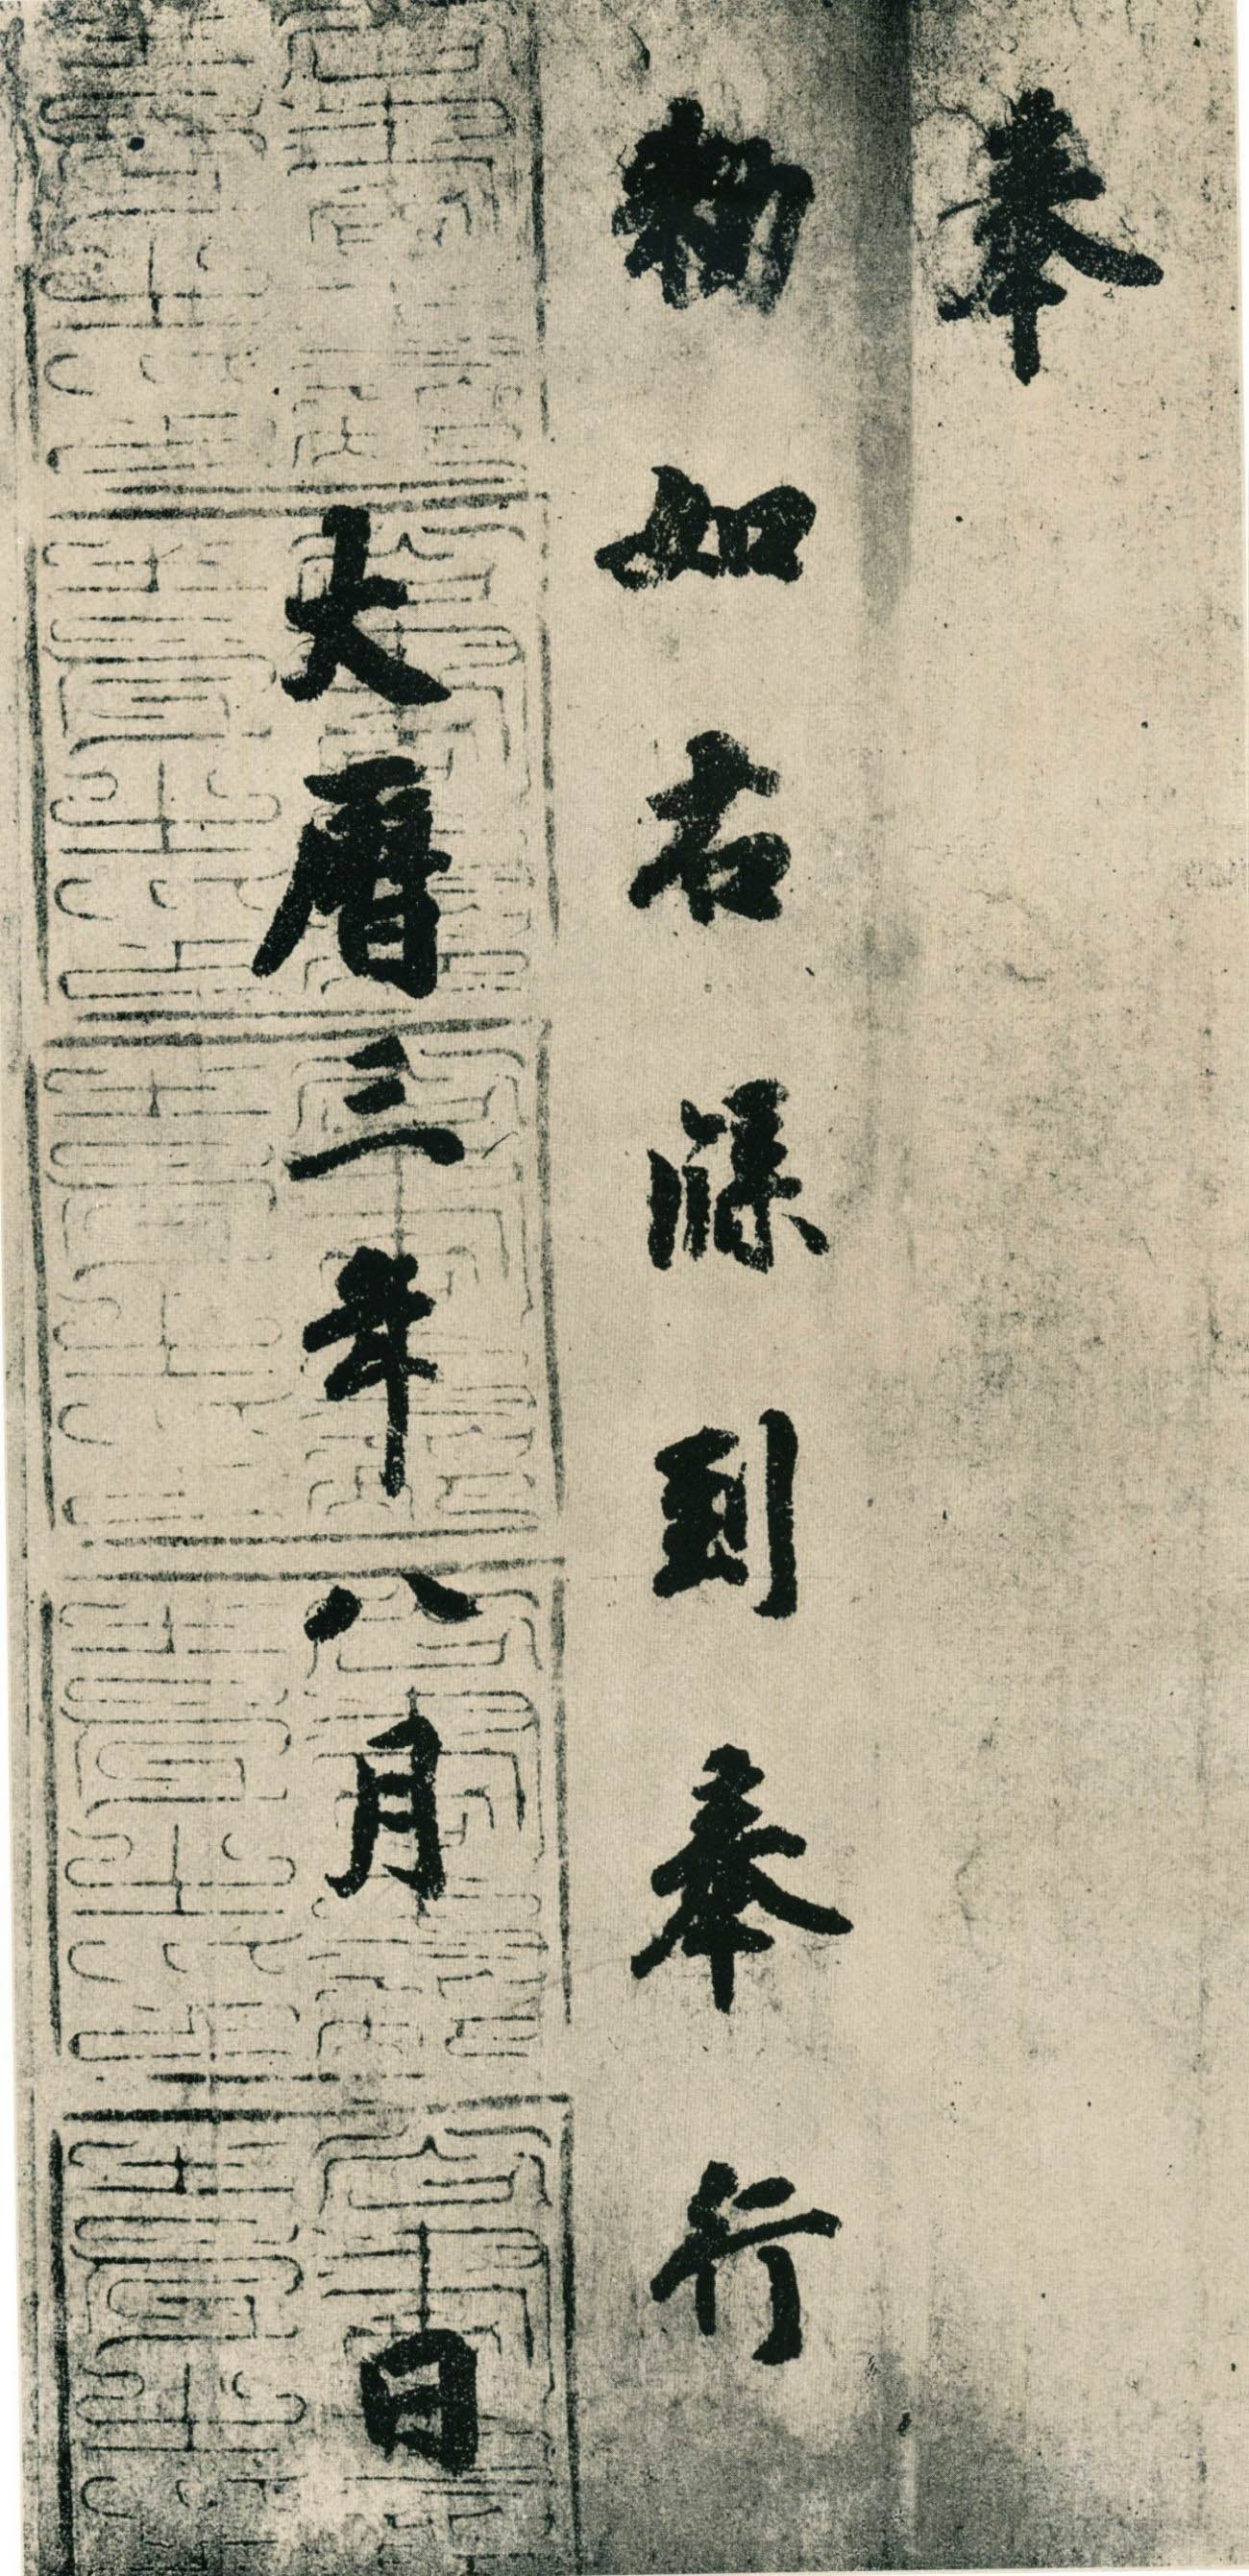 奉
勅如右牒到奉行
大曆三年八月　日